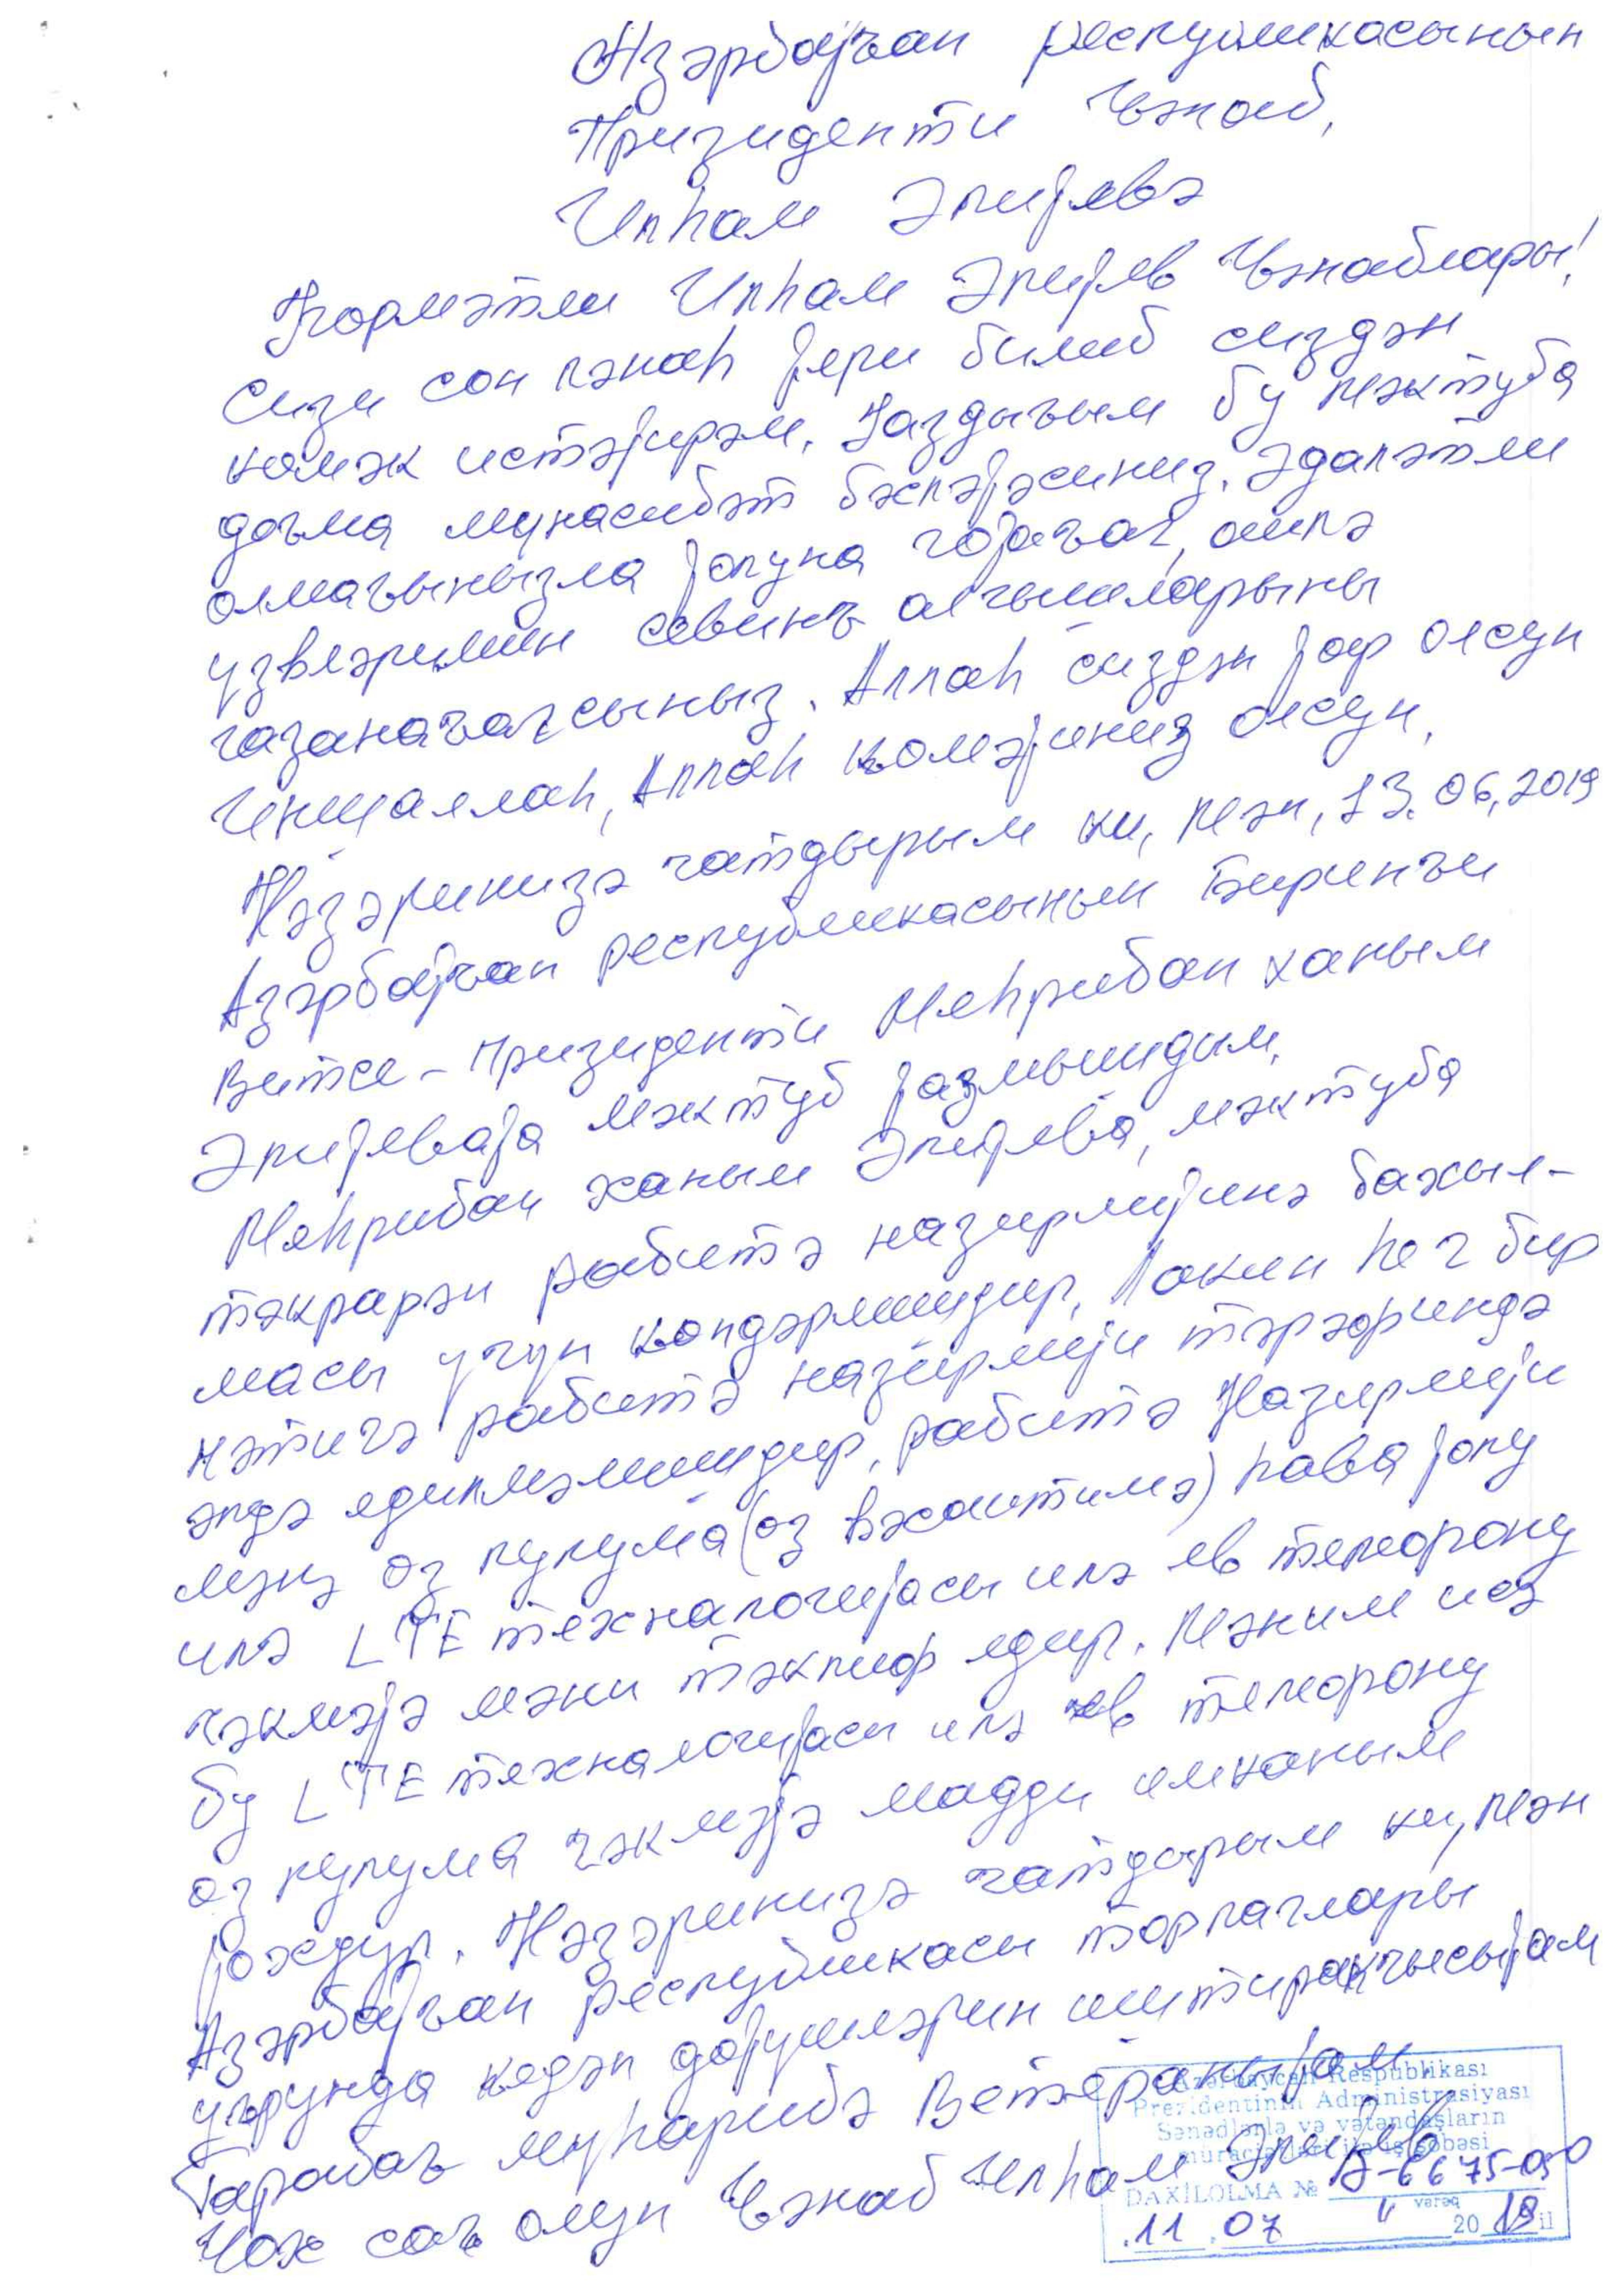 Азәрбајҹан республикасынын
Призиденти Ҹәнаб,
Илһам Әлијевә
Һөрмәтли Илһам Әлијев Ҹәнаблары!
Сизи сон пәнаһ јери билиб сиздән
көмәк истәјирәм. Јаздығым бу мәктуба
доғма мунасибәт бәсләјәсиниз. Әдаләтли
олмағынызла јолуна гојаҹаг, аилә
узвләримин севинҹ алгышларыны
газанаҹагсыныз. Аллаһ сиздән јар олсун
Иншаллаһ, Аллаһ көмәјиниз олсун.
Нәзәринизә чатдырым ки, Мән, 13.06.2019
Азәрбајҹан республикасынын Биринҹи
Витсе-призиденти Меһрибан ханым
Әлијеваја мәктуб јазмышдым.
Меһрибан ханым Әлијева, мәктуба
тәкрарән рабитә назирлијинә бахыл-
масы учун көндәрмишдир, Лакин һеч бир
нәтиҹә рабитә назирлији тәрәфиндә
әлдә едилмәмишдир, рабитә Назирлији
мәнә өз пулума (өз вәсаитимә) һава јолу
илә LTE техналогијасы илә ев телефону
чәкмәјә мәни тәклиф едир. Мәним исә
бу LTE технологијасы илә ев телефону
өз пулума чәкмәјә мадди имканым
јохдур. Нәзәринизә чатдырым ки, Мән
Азәрбајҹан Республикасы торпаглары
уғрунда кедән дөјушләрин иштиракчысыјам
Гарабағ муһарибә Ветераныјам.
Чох сағ олун Ҹәнаб Илһам Әлијев
Azərbaycan Respublikası
Prezidentinin Administrasiyası
Sənədlərlə və vətəndaşların
müraciətləri ilə iş şöbəsi
DAXİLOLMA № Ə-6675-050
vərəq
11 . 07 20 19 il